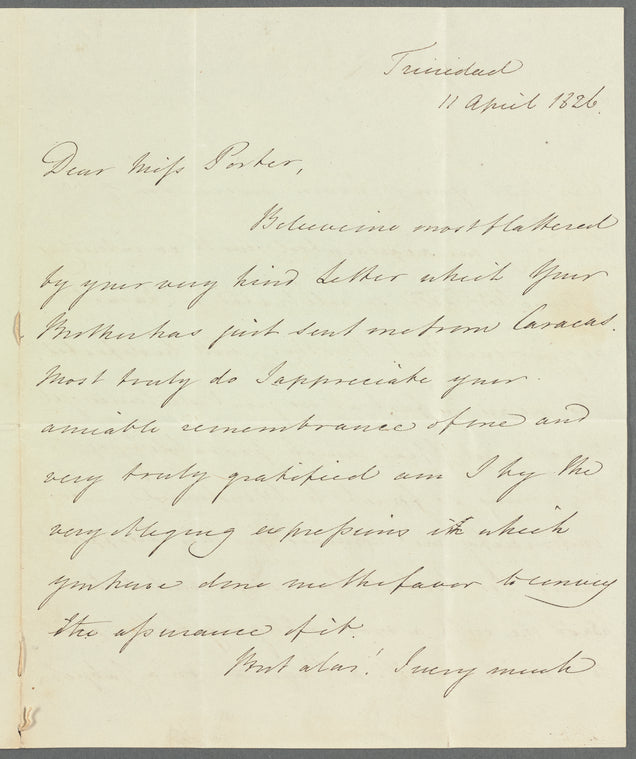 Trinidad
11 April 1826.
Dear Miss Porter,
Believe me most flattered
by your very kind Letter which Your
Brother has just sent me from Caracas.
Most truly do I appreciate your
amiable remembrance of me and
very truly gratified am I by the
very obliging expressions in which
you have done me the favor to convey
the assurance of it.
But alas! I very much